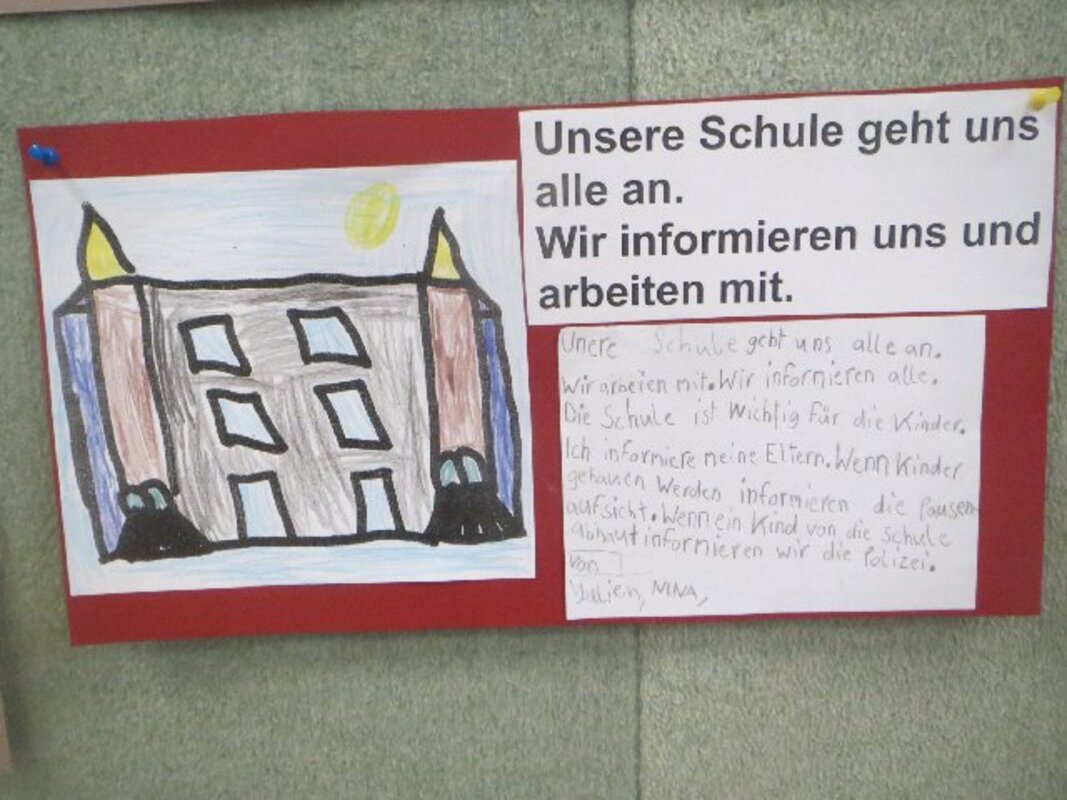 Unsere Schule geht uns
alle an.
Wir informieren uns und
arbeiten mit.
Unere Schule geht uns alle an.
Wir arbeien mit. Wir informieren alle.
Die Schule ist Wichtig für die Kinder.
Ich informiere meine Eltern. Wenn Kinder
gehauen Werden informieren die Pausen
aufsicht. Wenn ein Kind von die Schule
abhaut informieren wir die Polizei.
Von
Julien, NINA,